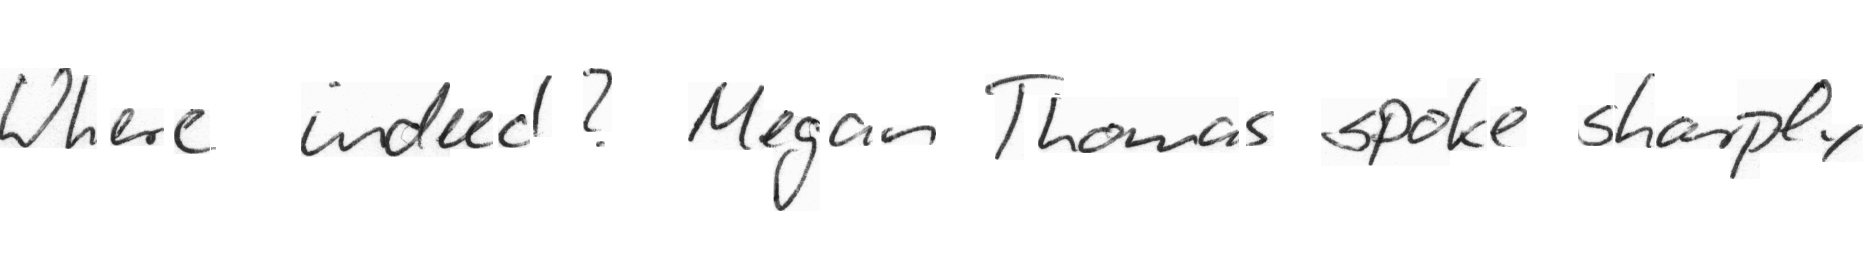 Where indeed? Megan Thomas spoke sharply